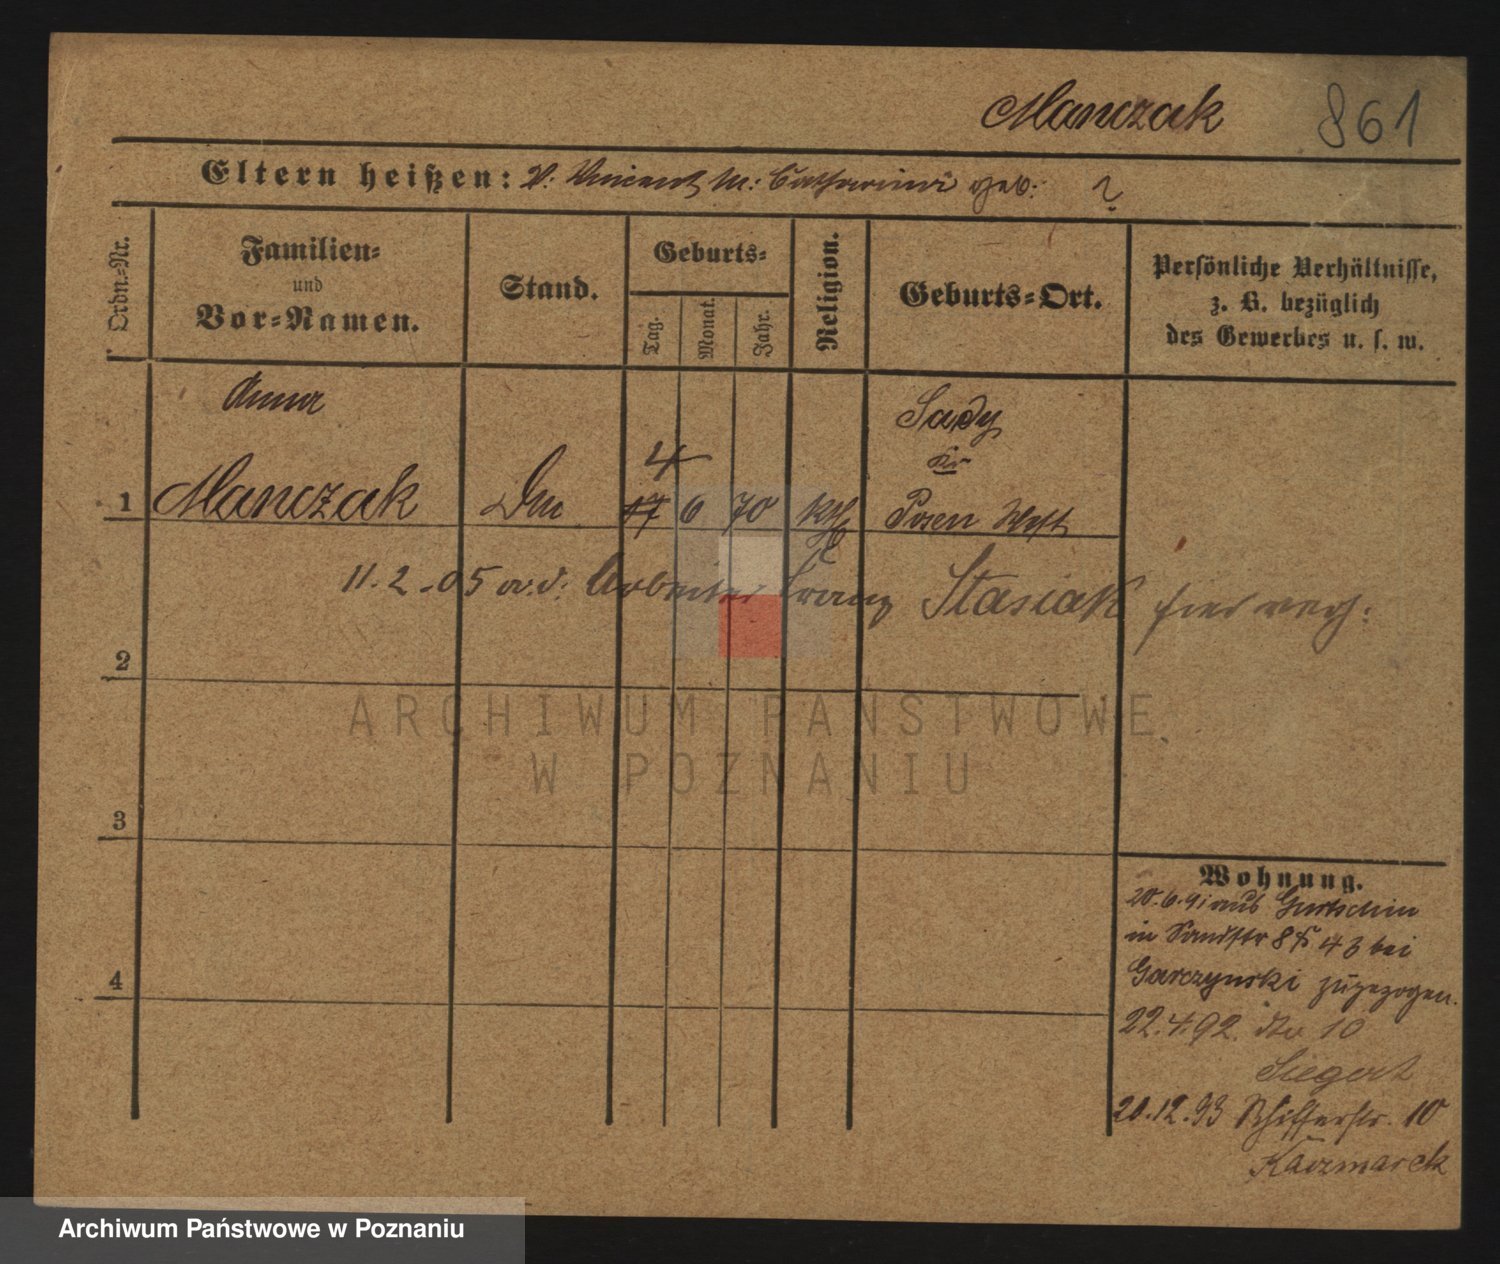 Manczak 861
Eltern heißen: V: Vincent M: Catharina geb: ?
Ordn.-Nr.
Familien-
und
Vor-Namen.
Stand.
Geburts-
Tag.
Monat.
Jahr.
Religion.
Geburts-Ort.
Persönliche Verhältnisse,
z. B. bezüglich
des Gewerbes u. s. w.
Anna Sady
4 Kr
1 Manczak 17 6 70 kth Posen West
11.2.05 m. d. Arbeiter Franz Stasiak hier verh.
2
ARCHIWUM PAŃSTWOWE
W POZNANIU
3
Wohnung.
20.6.91 aus Gurtschin
in Sandstr 8 43 bei
Garczynski zugezogen.
4
22.4.92. No 10
Siegert
20.12.93 Schifferstr. 10
Kaczmarek
Archiwum Państwowe w Poznaniu